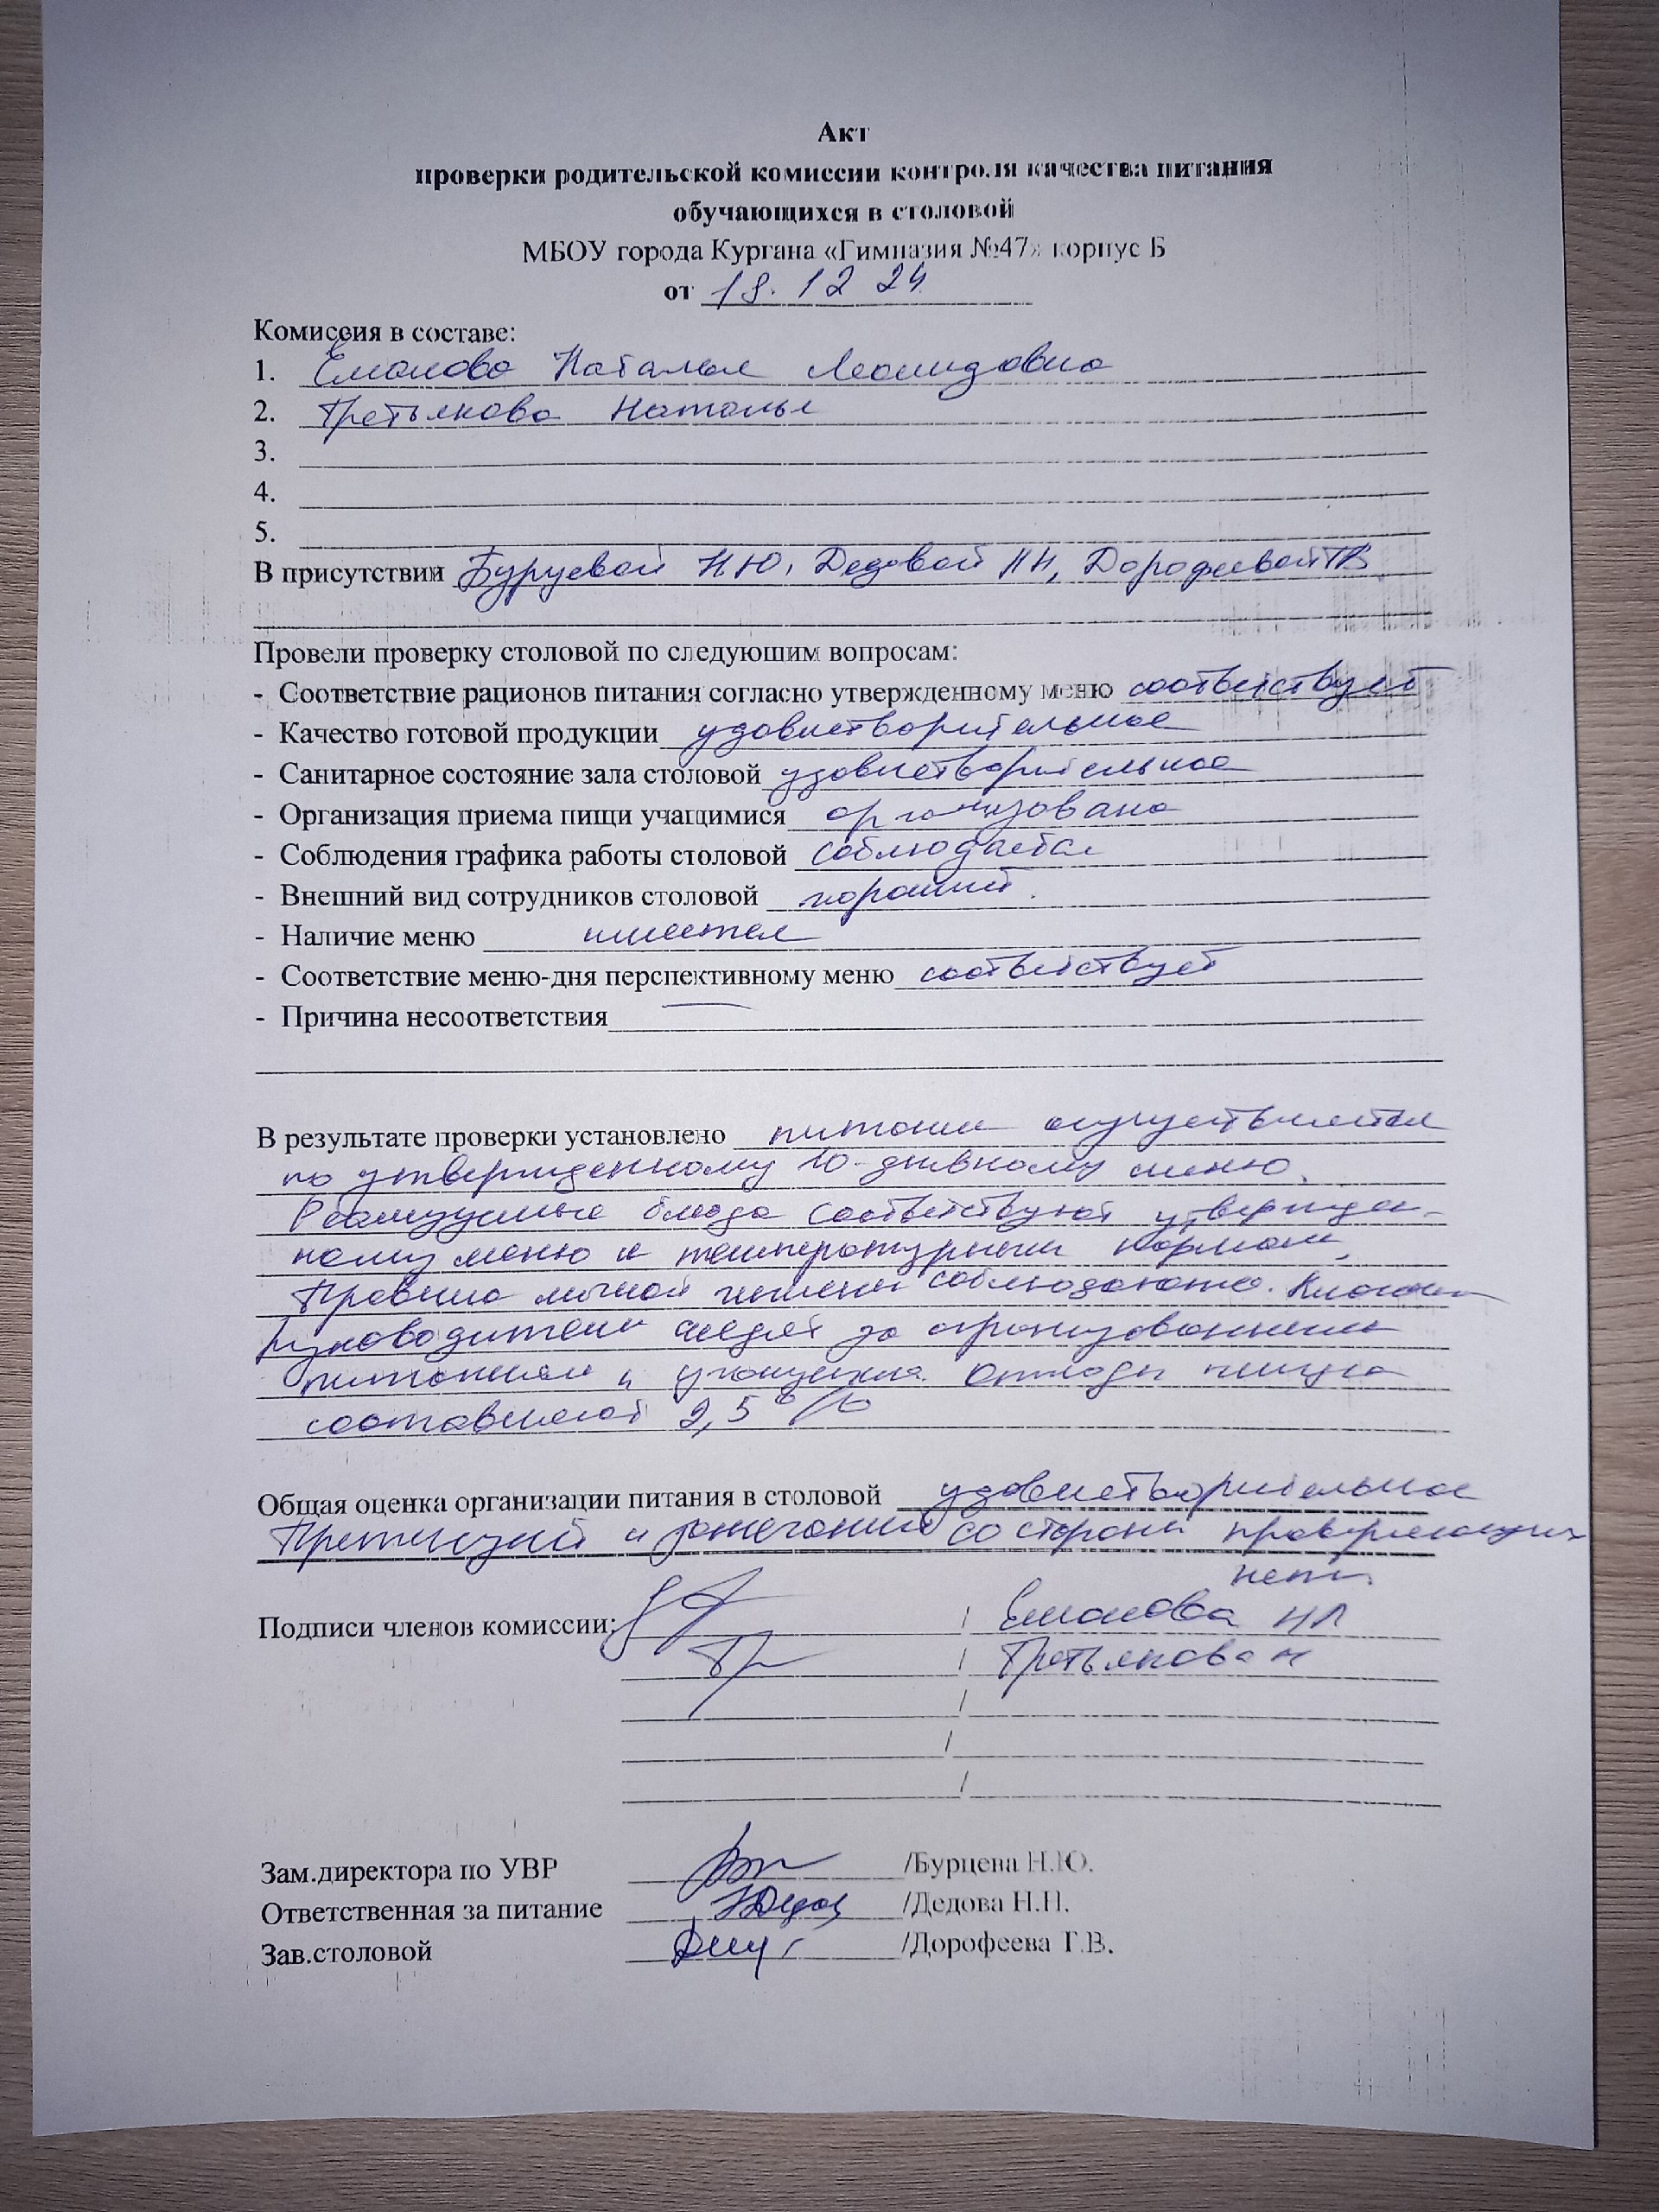 Акт
проверки родительской комиссии контроля качества питания
обучающихся в столовой
МБОУ города Кургана «Гимназия №47» корпус Б
от 18.12 24
Комиссия в составе:
1. Еманова Наталья Леонидовна
2. Третьякова Наталья
3.
4.
5.
В присутствии Бурцевой Н.Ю, Дедовой НН, Дорофеевой ГВ
Провели проверку столовой по следующим вопросам:
- Соответствие рационов питания согласно утвержденному меню соответствует
- Качество готовой продукции удовлетворительное
- Санитарное состояние зала столовой удовлетворительное
- Организация приема пищи учащимися организовано
- Соблюдения графика работы столовой соблюдается
- Внешний вид сотрудников столовой хороший.
- Наличие меню имеется
- Соответствие меню-дня перспективному меню соответствует
- Причина несоответствия —
В результате проверки установлено питание осуществляется
по утвержденному 10-дневному меню.
Реализуемые блюда соответствуют утвержден-
ному меню и температурным нормам.
Правила личной гигиены соблюдаются. Классн
руководители следят за организованным
питанием и учащихся. Отходы пищи
составляют 2,5 %
Общая оценка организации питания в столовой удовлетворительное
Претензий и замечаний со стороны проверяющих
нет.
Подписи членов комиссии: / Еманова НЛ
/ Третьякова Н
/
/
/
Зам.директора по УВР /Бурцева Н.Ю.
Ответственная за питание /Дедова Н.Н.
Зав.столовой /Дорофеева Г.В.